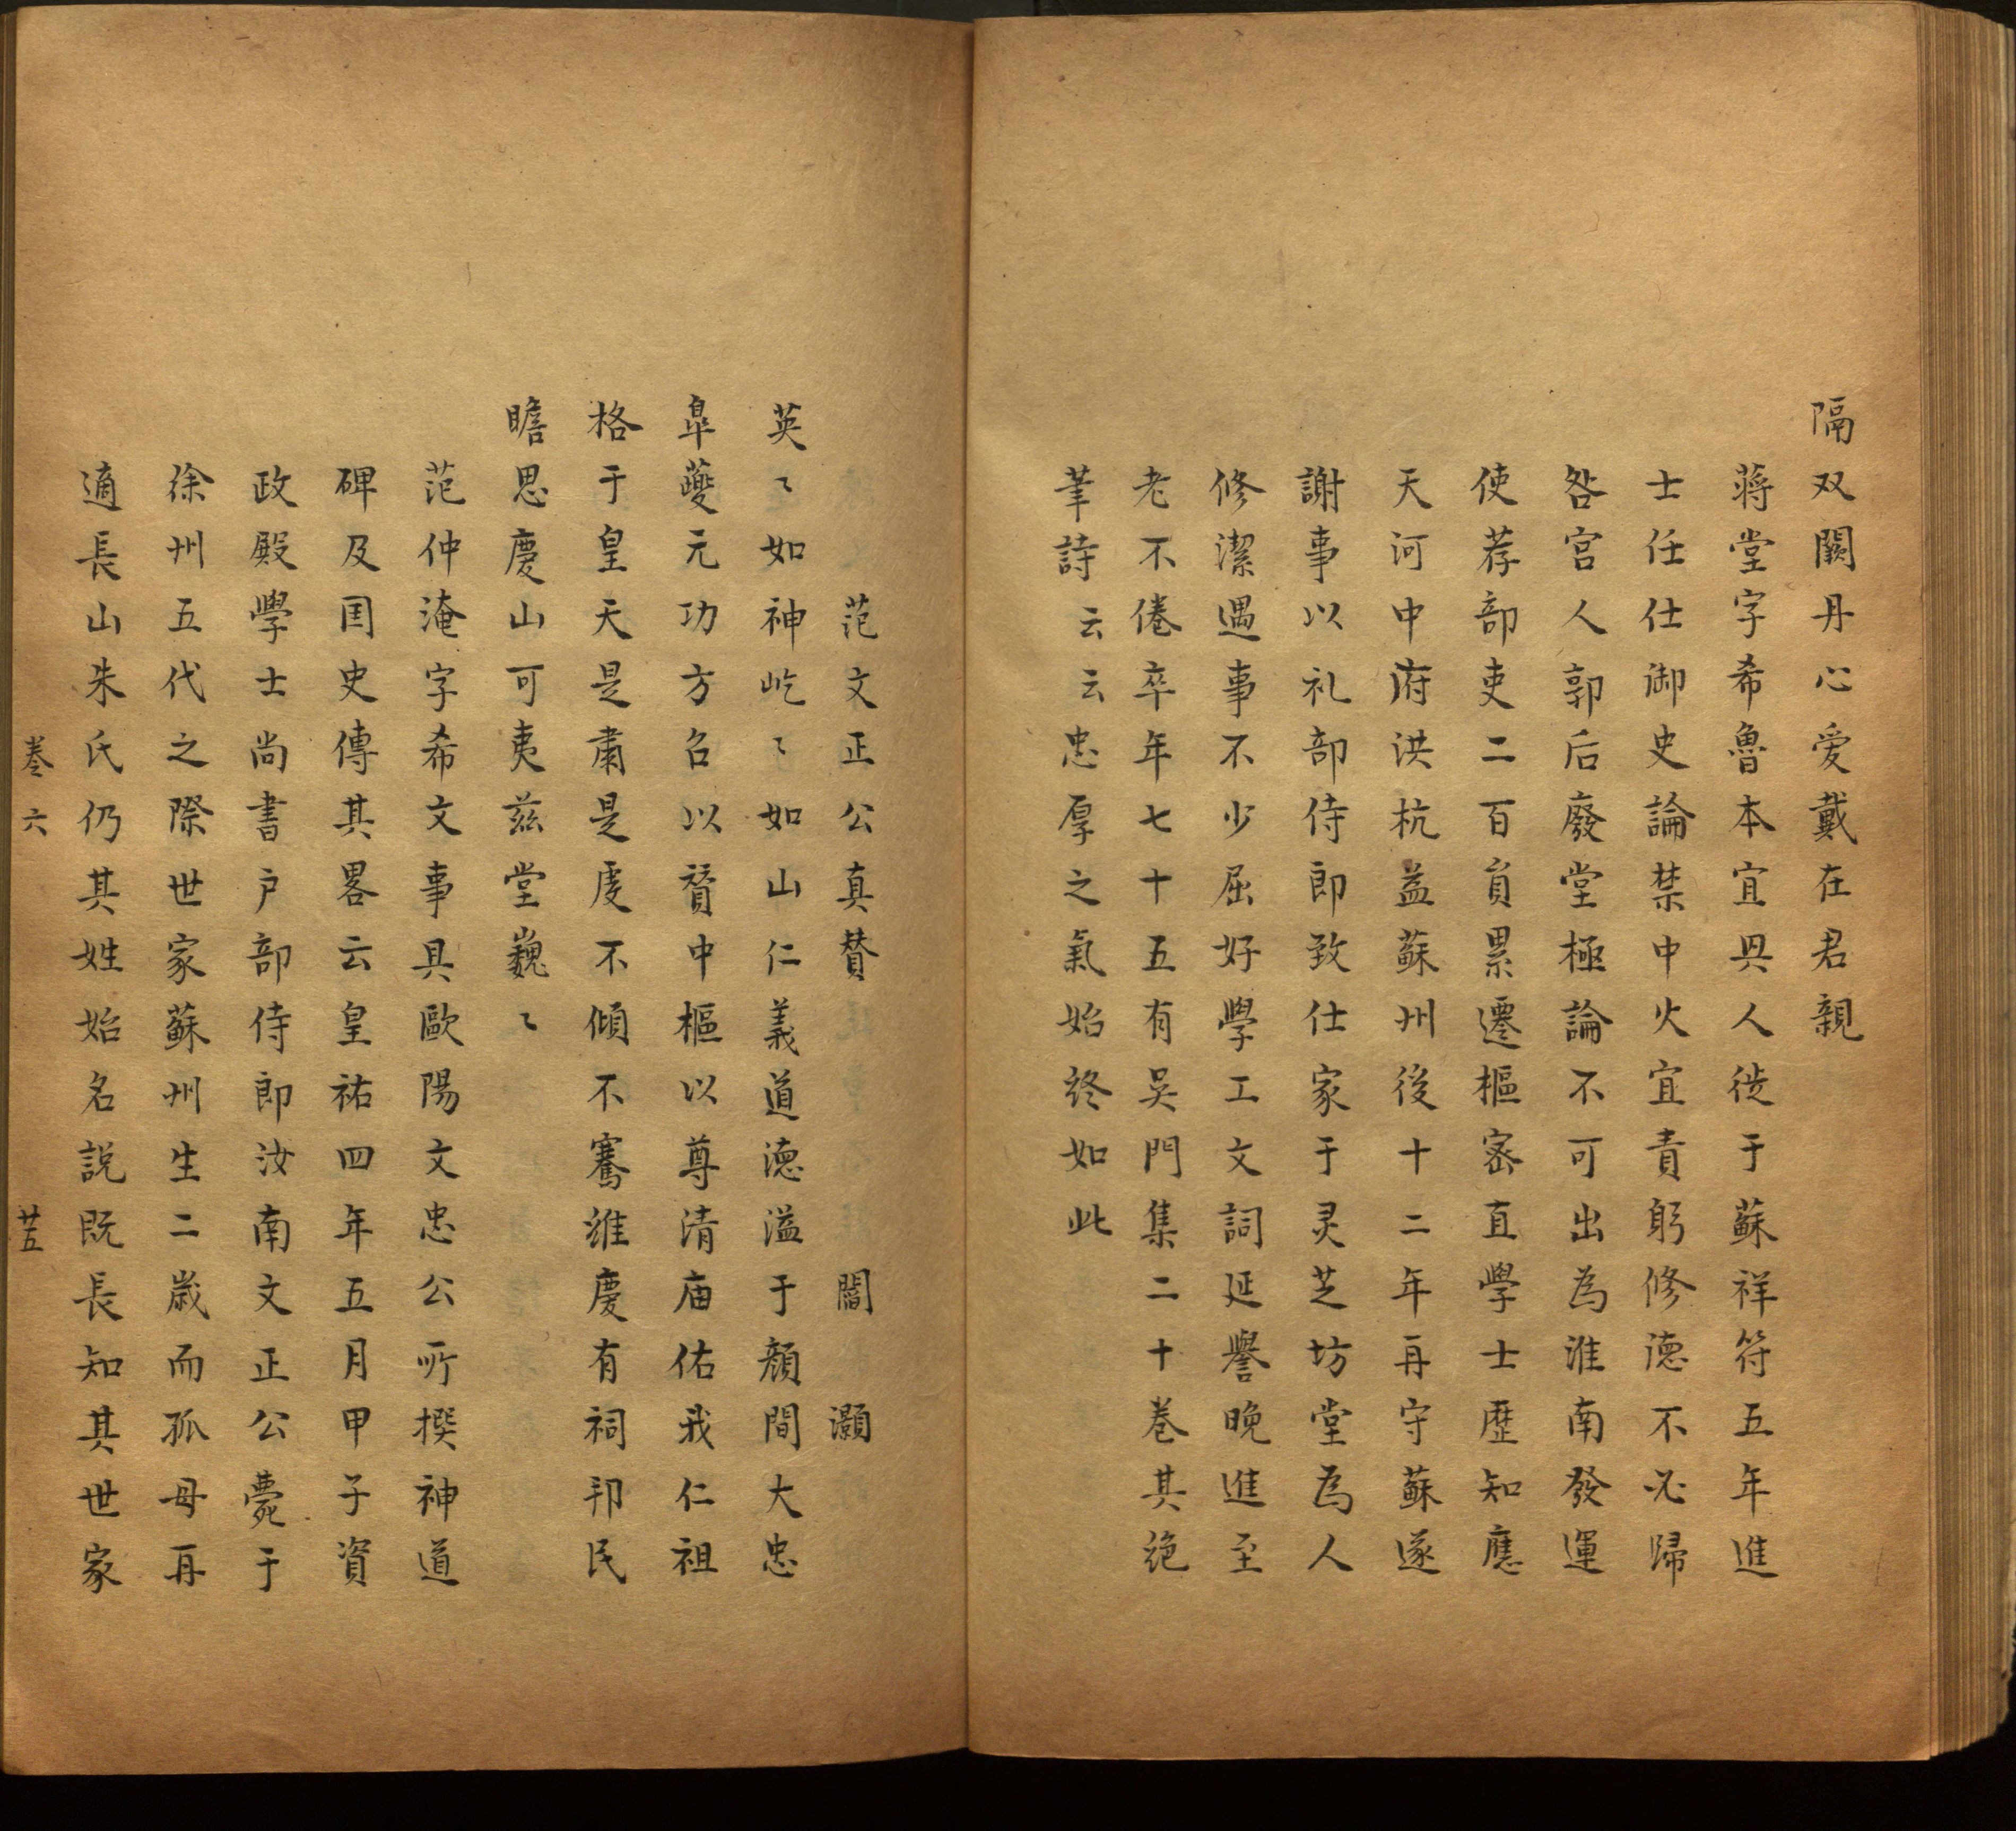 隔双闕丹心爱戴在君親
蔣堂字希魯本宜興人徙于蘇祥符五年進
士任仕御史論禁中火宜責躬修德不必歸
咎宮人郭后廢堂極論不可出為淮南發運
使荐部吏二百員累遷樞密直學士歷知應
天河中府洪杭益蘇州後十二年再守蘇遂
謝事以礼部侍郎致仕家于灵芝坊堂為人
修潔遇事不少屈好學工文詞延譽晚進至
老不倦卒年七十五有吳門集二十卷其絶
筆詩云云忠厚之氣始終如此
范文正公真賛　閻灝
英〻如神屹〻如山仁義道德溢于顔間大忠
臯夔元功方召以贊中樞以尊清庙佑我仁祖
格于皇天是肅是虔不傾不騫維慶有祠邦民
瞻思慶山可夷兹堂巍〻
范仲淹字希文事具歐陽文忠公所撰神道
碑及国史傳其畧云皇祐四年五月甲子資
政殿學士尚書户部侍郎汝南文正公薨于
徐州五代之際世家蘇州生二歲而孤母再
適長山朱氏仍其姓始名説既長知其世家
卷六　廿五